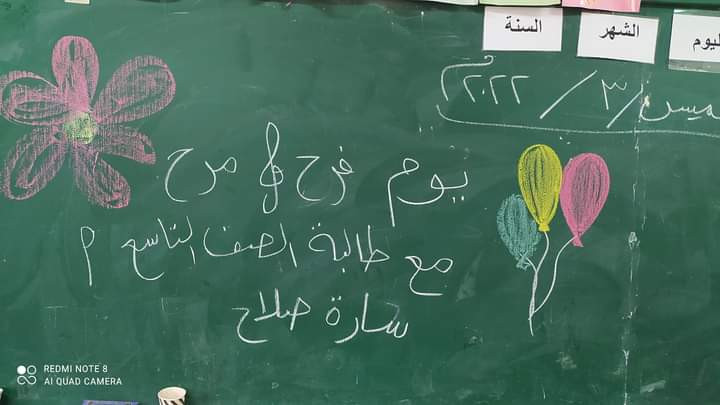 اليوم الشهر السنة
الخميس / ٣ / ٢٠٢٢م
يوم فرح & مرح
مع طالبة الصف التاسع م
سارة صلاح
REDMI NOTE 8
AI QUAD CAMERA